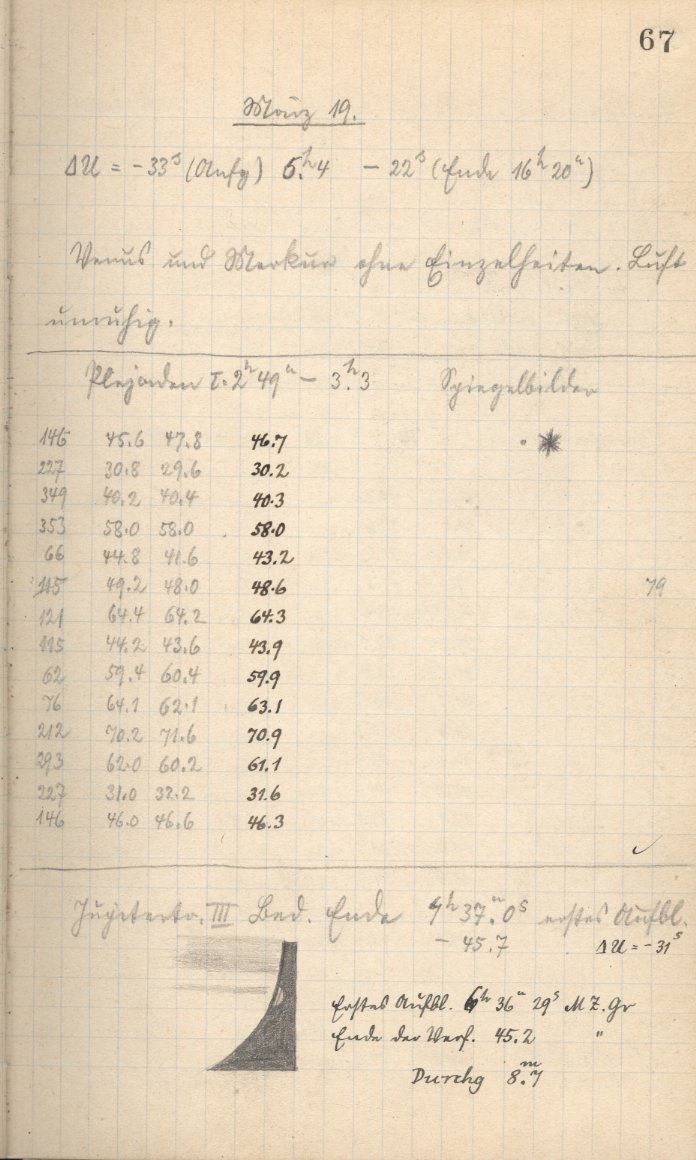 67
März 19.
ΔU = -33ˢ (Anfg) 5.ʰ4 - 22ˢ (Ende 16ʰ 20ᵐ)
Venus und Merkur ohne Einzelheiten. Luft
unruhig.
Plejaden I. 2ʰ 49ᵐ - 3.ʰ3 Spiegelbilder
146 45.6 47.8 46.7
227 30.8 29.6 30.2
349 40.2 40.4 40.3
353 58.0 58.0 58.0
66 44.8 41.6 43.2
115 49.2 48.0 48.6 79
121 64.4 64.2 64.3
115 44.2 43.6 43.9
62 59.4 60.4 59.9
76 64.1 62.1 63.1
212 70.2 71.6 70.9
293 62.0 60.2 61.1
227 31.0 32.2 31.6
146 46.0 46.6 46.3
Jupitertr. III Bed. Ende 37.ᵐ0ˢ erstes Aufbl.
- 45.7 ΔU = -31ˢ
Erstes Aufbl. 6ʰ 36ᵐ 29ˢ M Z. Gr
Ende der Verf. 45.2 "
Durchg 8.ᵐ7